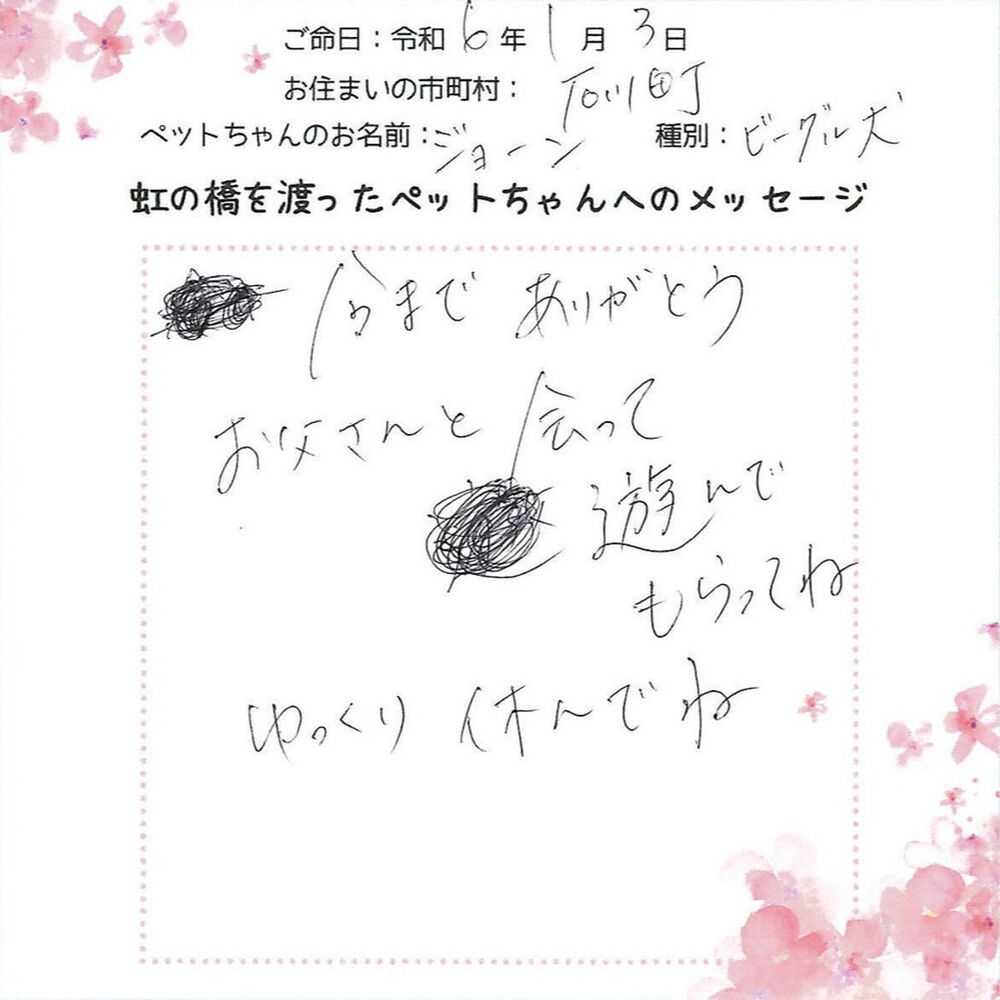 ご命日：令和 6 年 1 月 3 日
お住まいの市町村： 石川町
ペットちゃんのお名前：ジョーン 種別：ビーグル犬
虹の橋を渡ったペットちゃんへのメッセージ
今まで ありがとう
お父さんと 会って
遊んで
もらってね
ゆっくり 休んでね